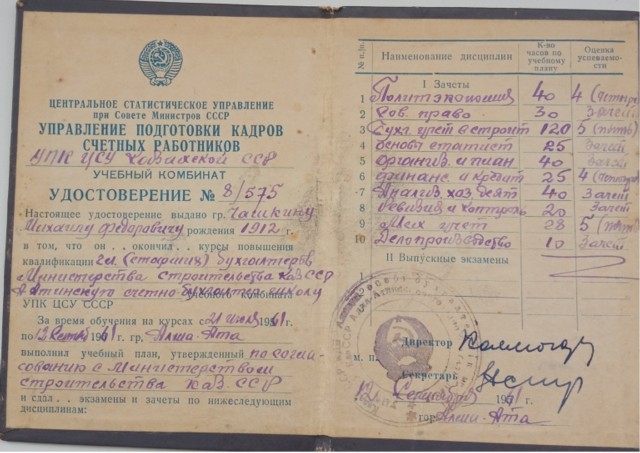 ЦЕНТРАЛЬНОЕ СТАТИСТИЧЕСКОЕ УПРАВЛЕНИЕ
при Совете Министров СССР
УПРАВЛЕНИЕ ПОДГОТОВКИ КАДРОВ
СЧЕТНЫХ РАБОТНИКОВ
УПК ЦСУ Казахской ССР
УЧЕБНЫЙ КОМБИНАТ
УДОСТОВЕРЕНИЕ № 8/575
Настоящее удостоверение выдано гр. Чашкину
Михаилу Федоровичу рождения 1912 г.
в том, что он окончил курсы повышения
квалификации гл. (старших) бухгалтеров
Министерства строительства КазССР
А-Атинскую счетно-бухгалтер. школу учебного комбината
УПК ЦСУ СССР
За время обучения на курсах с 21 июля 1961
по 12 сентяб 1961 г гр. Алма-Ата
выполнил учебный план, утвержденный по согла-
сованию с Министерством
строительства Каз. ССР
и сдал экзамены и зачеты по нижеследующим
дисциплинам:
№ п/п. Наименование дисциплин К-во часов по учебному плану Оценка успеваемости
I Зачеты
1 Политэкономия 40 4 (четыре)
2 Сов. право 30 Зачет
3 Бухг. учет в строит 120 5 (пять)
4 Основы статист 25 Зачет
5 Организ. и план 40 Зачет
6 Финанс. и кредит 25 4 (четыре)
7 Анализ хоз. деят 40 Зачет
8 Ревизия и контроль 20 Зачет
9 Мех учет 28 5 (пять)
10 Делопроизводство 10 Зачет
II Выпускные экзамены
Директор
м. п.
Секретарь
сентября 1961
гор Алма-Ата